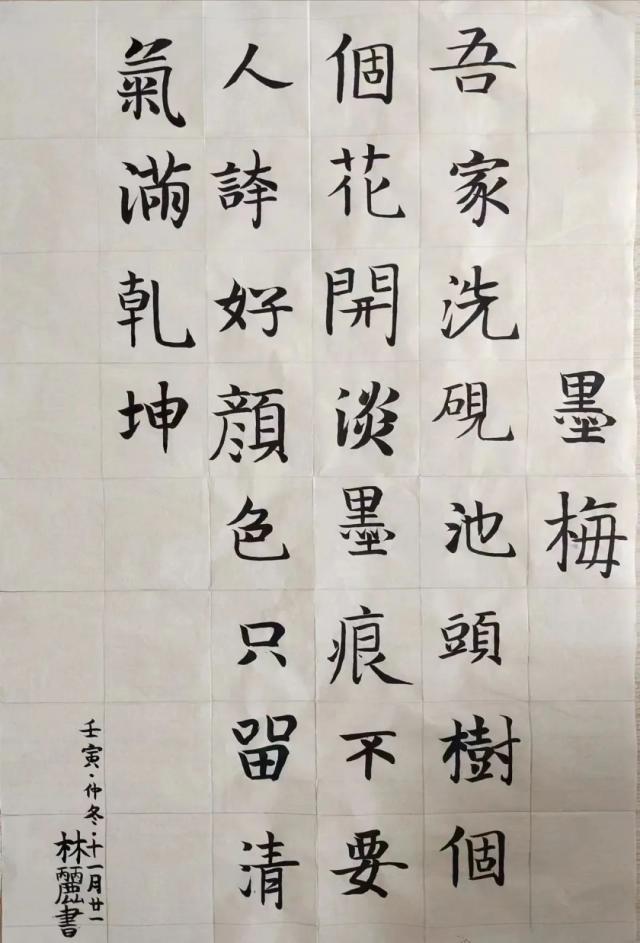 墨梅
吾家洗硯池頭樹個
個花開淡墨痕不要
人誇好顏色只留清
氣滿乾坤
壬寅·仲冬·十一月廿一
林麗書